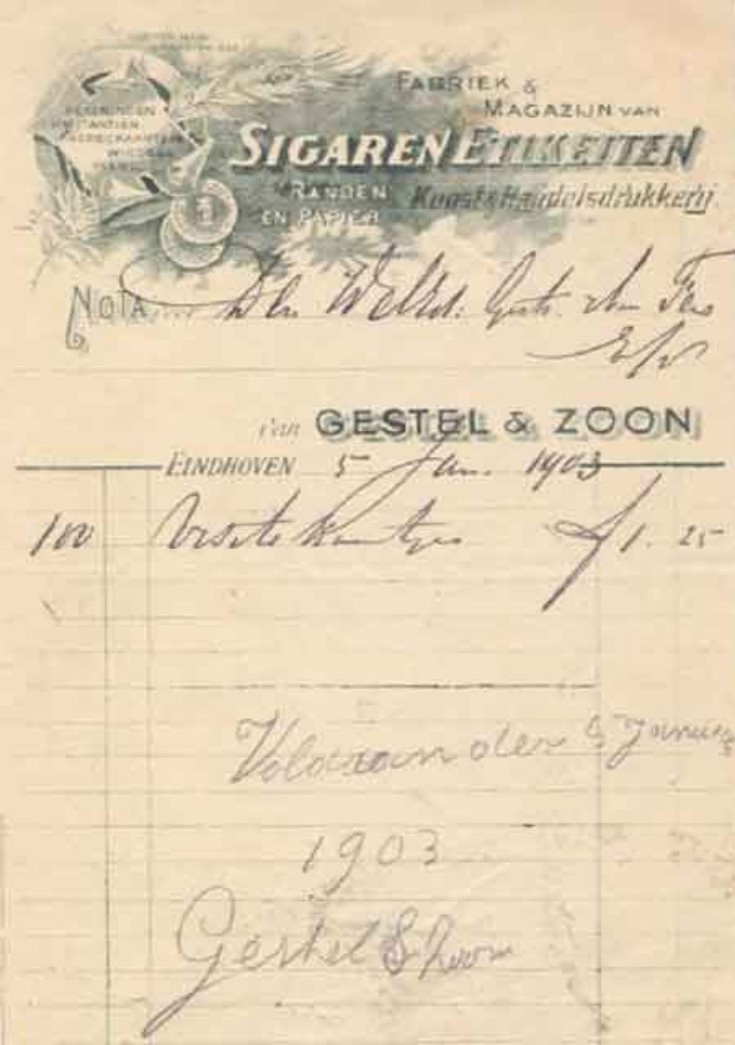 FABRIEK &
MAGAZIJN VAN
SIGAREN ETIKETTEN
RANDEN
EN PAPIER
Kunst & Handelsdrukkerij.
REKENINGEN
NOTA
van GESTEL & ZOON
EINDHOVEN 5 Jan. 1903
100 visite kaartjes f 1.25
Voldaan der 5 Januarij
1903
Gestel & Zoon